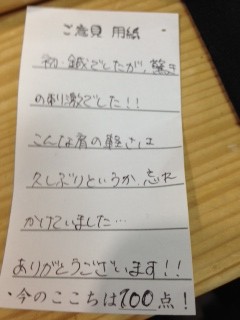 ご意見 用紙
初 鍼でしたが、驚き
の刺激でした！！
こんな肩の軽さは
久しぶりというか、忘れ
かけていました…
ありがとうございます！！
・今のここちは100点！